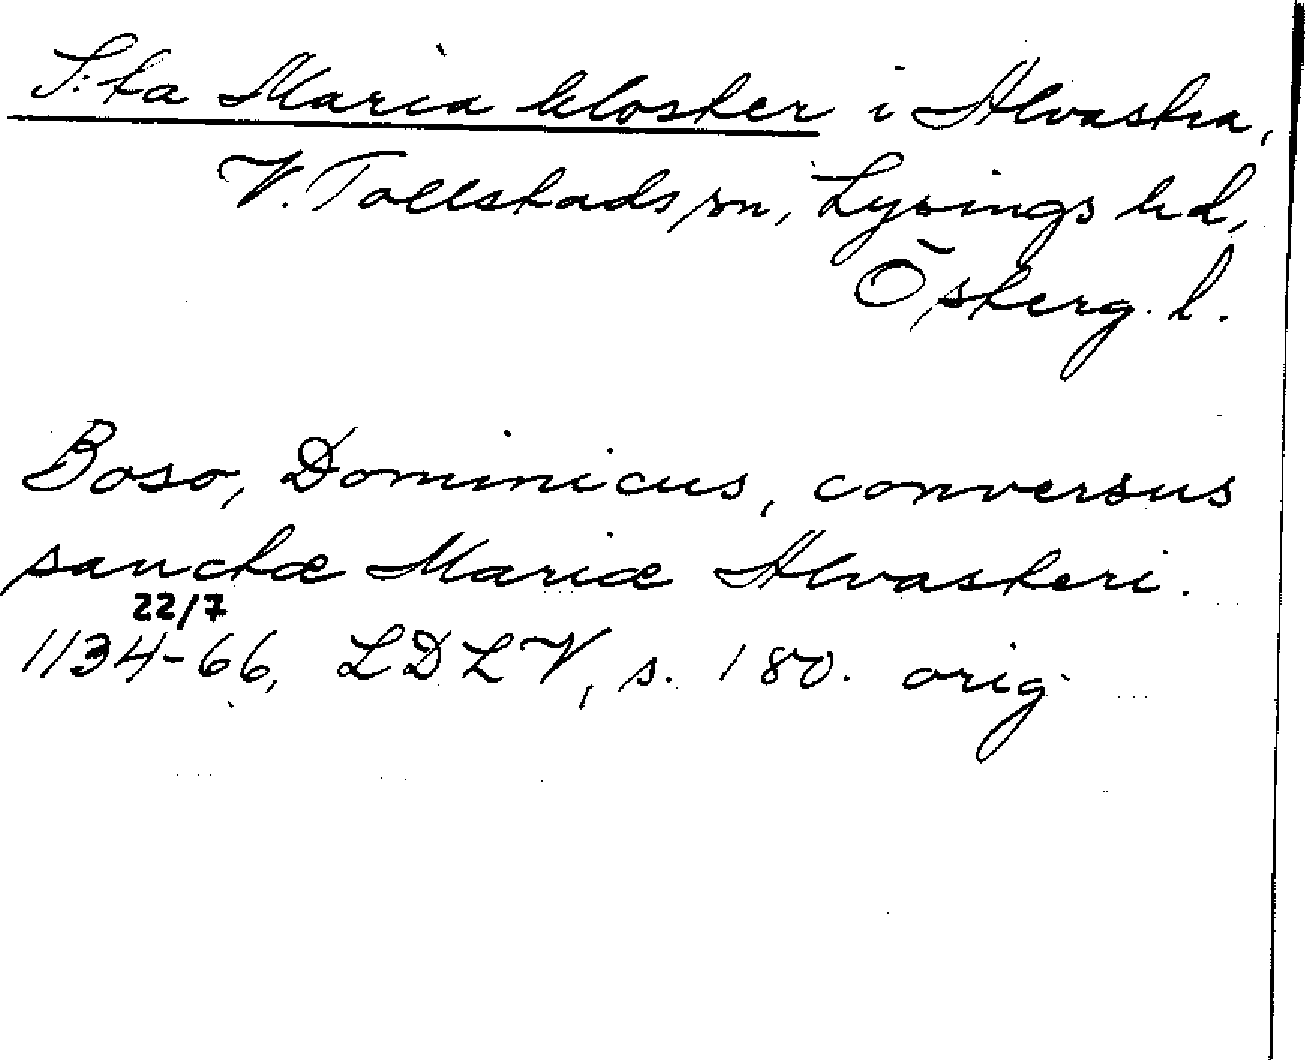 S:ta Maria kloster i Alvastra,
V. Tollstads sn, Lysings hd,
Österg. l.
Boso, Dominicus, conversus
sanctæ Mariæ Alvasteri.
22/7
1134-66, LDLV, s. 180. orig.